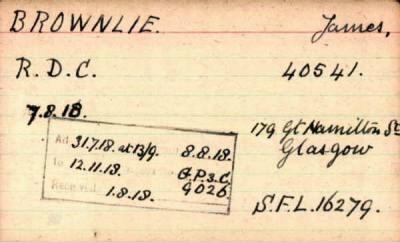 BROWNLIE. James,
R.D.C. 40541.
7.8.18.
179 Gt Hamilton St
Glasgow
Ad 31.7.18. at 13/9. 8.8.18.
to 12.11.18. G.P.3.C.
Received 1.8.18. 9026
S.F.L. 16279.